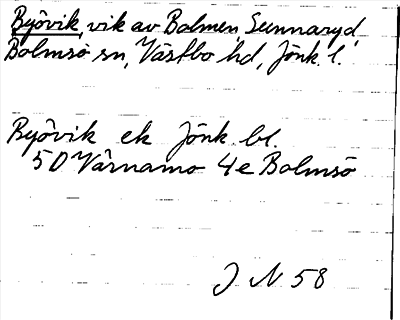 Byövik, vik av Bolmen, Sunnaryd,
Bolmsö sn, Västbo hd, Jönk. l.
Byövik ek Jönk. bl.
5D Värnamo 4e Bolmsö
J N 58